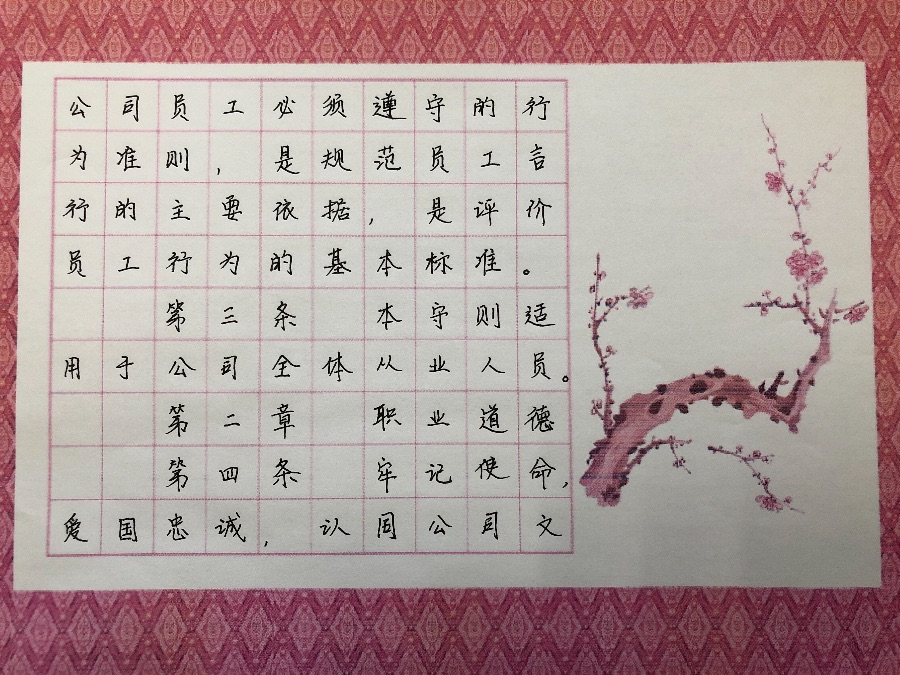 公司员工必须遵守的行
为准则，是规范员工言
行的主要依据，是评价
员工行为的基本标准。
第三条 本守则适
用于公司全体从业人员。
第二章 职业道德
第四条 牢记使命，
爱国忠诚，认同公司文